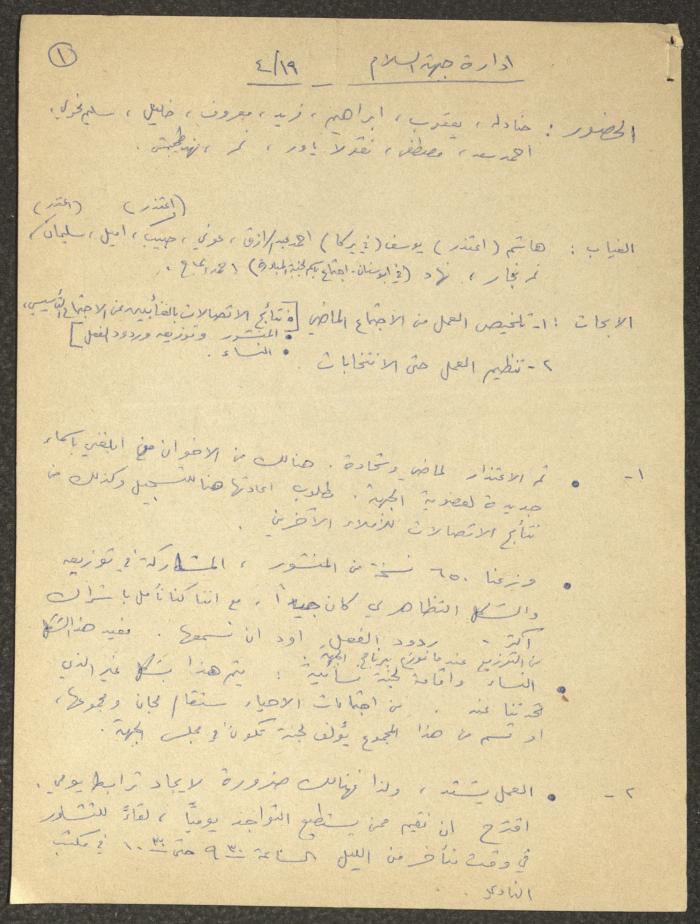 ١
ادارة جبهة السلام - ٤/١٩
الحضور : يعقوب ، ابراهيم ، فريد ، معروف ، خليل ، سليم
احمد سعد ، مصطفى ، نقولا ، نمر ،
(اعتذر) (اعتذر)
الغياب : هاشم (اعتذر) يوسف (في يركا) احمد عبد الرازق ، عوني ، حبيب ، اميل ، سليمان ،
نمر نجار ، نهاد (في ابو سنان - اجتماع
الابحاث : ١- تلخيص العمل من الاجتماع الماضي [• نتائج الاتصالات بالغائبين عن الاجتماع التأسيسي،
• المنشور وتوزيعه وردود الفعل]
• النساء .
٢- تنظيم العمل حتى الانتخابات .
١-
• تم الاعتذار لماضي وشحادة . هنالك من الاخوان من ابلغني باسماء
جديدة لعضوية الجبهة . مطلوب اعادتها هنا للتسجيل وكذلك من
نتائج الاتصالات للزملاء الآخرين .
• وزعنا ٦٥٠ نسخة من المنشور ، المشاركة في توزيعه
والشكل التظاهري كان جيداً ، مع اننا كنا نأمل باشتراك
اكثر - ردود الفعل اود ان نسمعها . مفيد هذا الشكل
من التوزيع عندما نوزع برنامج الجبهة .
• النساء واقامة لجنة نسائية : يتم هذا بشكل غير الذي
تحدثنا عنه . من اجتماعات الاحياء ستقام لجان ومجموعها،
او قسم من هذا المجموع يؤلف لجنة تكون في مجلس الجبهة .
٢-
• العمل يشتد ، ولذا فهنالك ضرورة لايجاد ترابط يومي .
اقترح ان نقيم ممن يستطيع التواجد يومياً ، لقاءً للتشاور
في وقت متأخر من الليل الساعة ٩٣٠ حتى ١٠٣٠ في مكتب
النادي .